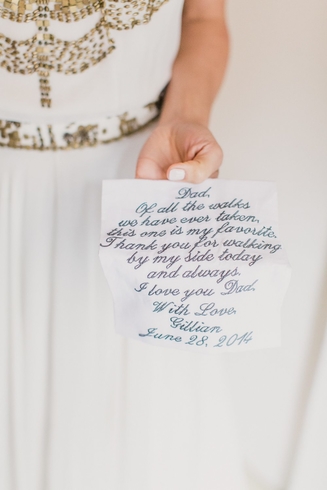 Dad,
Of all the walks
we have ever taken,
this one is my favorite.
Thank you for walking
by my side today
and always.
I love you Dad.
With Love,
Gillian
June 28, 2014